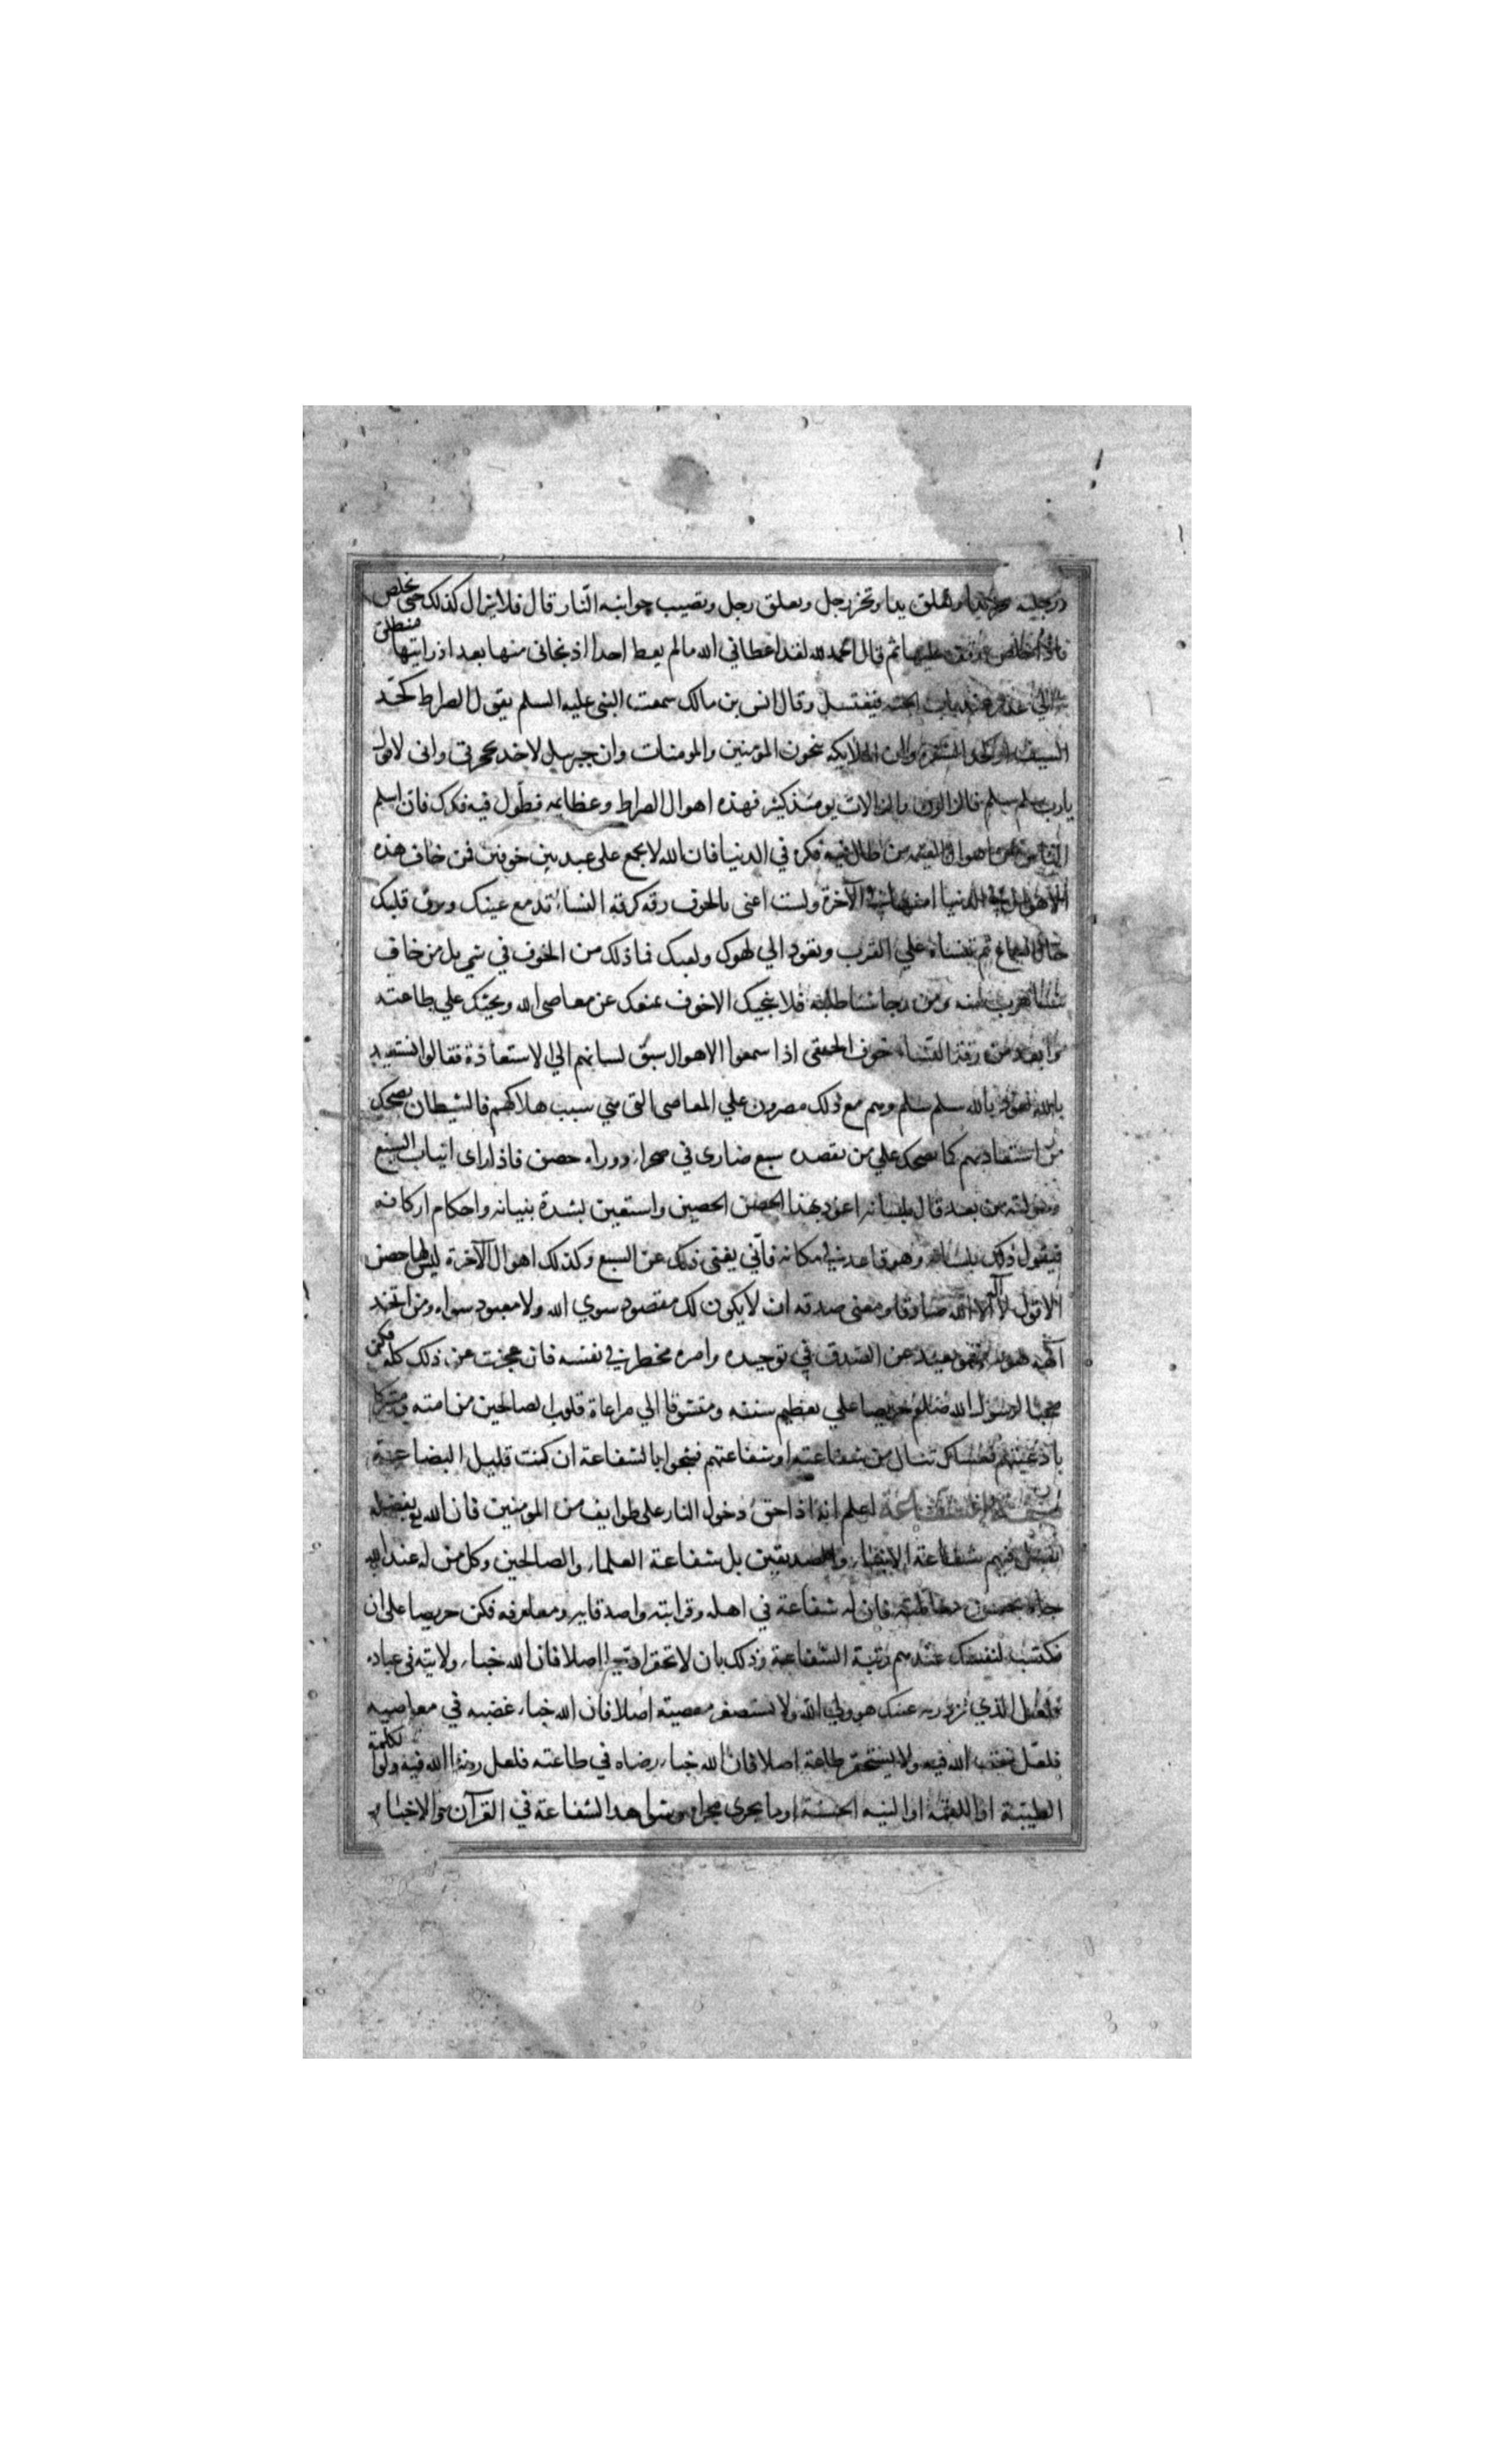 ورجليه تجر يدا وتعلق يدا وتجر رجل وتعلق رجل وتصيب جوانبه النار قال فلا يزال كذلك حتى يخلص
فاذا خلص وقف عليها ثم قال الحمد لله لقد اعطاني الله مالم يعط احدا اذ نجاني منها بعد اذ رايتها فينطلق
به الي غدير عند باب الجنة فيغتسل وقال انس بن مالك سمعت النبي عليه السلم يقول الصراط كحد
السيف او كحد الشعرة وان الملايكة ينجون المؤمنين والمومنات وان جبريل لاخذ بحجزتي واني لاقول
يارب سلم سلم فالزالون والزالات يومئذ كثير فهذه اهوال الصراط وعظايمه فطول فيه فكرك فان اسلم
الناس من اهوال القيمه من اطال فيه فكره في الدنيا فان الله لا يجمع على عبد بين خوفين فمن خاف هذه
الاهوال في الدنيا امنها في الآخرة ولست اعنى بالخوف رقة كرقة النساء تدمع عينك ويرق قلبك
حال السماع ثم تنساه علي القرب وتعود الي لهوك ولعبك فما ذلك من الخوف في شي بل من خاف
شيئا هرب منه ومن رجا شيا طلبه فلا ينجيك الا خوف يمنعك عن معاصى الله ويحثك علي طاعته
وابعد من رقة النساء خوف الحمقى اذا سمعوا الاهوال سبق لسانهم الي الاستعاذة فقالوا نستعيد
بالله نعوذ بالله سلم سلم وهم مع ذلك مصرون علي المعاصى التى هي سبب هلاكهم فالشيطان يضحك
من استعاذتهم كما يضحك علي من يقصده سبع ضارى في صحراء ووراه حصن فاذا راى انياب السبع
وصولته من بعد قال بلسانه اعوذ بهذا الحصن الحصين واستعين بشدة بنيانه واحكام اركانه
فيقول ذلك بلسانه وهو قاعد في مكانه فاني يغنى ذلك عن السبع وكذلك اهوال الآخرة ليس لها حصن
الا قول لا اله الا الله صادقا ومعنى صدقه ان لا يكون لك مقصود سوي الله ولا معبود سواه ومن اتخذ
الهه هواه فهو بعيد عن الصدق في توحيده وامره مخطر في نفسه فان عجزت عن ذلك كله فكن
محبا لرسول الله صلعم حريصا علي تعظيم سنته ومتشوقا الي مراعاة قلوب الصالحين من امته ومتبركا
بادعيتهم فعساك تنال من شفاعته او شفاعتهم فتنجوا بالشفاعة ان كنت قليل البضاعة
صفة الشفاعة اعلم انه اذا حق دخول النار على طوايف من المومنين فان الله بفضله
يقبل فيهم شفاعة الانبياء والصديقين بل شفاعة العلماء والصالحين وكل من له عند الله
جاه بحسن معاملته فان له شفاعة في اهله وقرابته واصدقايه ومعارفه فكن حريصا على ان
تكتسب لنفسك عندهم رتبة الشفاعة وذلك بان لا تحقر ادميا اصلا فان الله خباء ولايته في عباده
فلعل الذي تزدريه عينك هو ولي الله ولا تستصغر معصية اصلا فان الله خباء غضبه في معاصيه
فلعل غضب الله فيه ولا يستحقر طاعة اصلا فان الله خباء رضاه في طاعته فلعل رضا الله فيه ولو الكلمة
الطيبة او اللقمة او النية الحسنة او ما يجري مجراه وشواهد الشفاعة في القرآن والاخبار